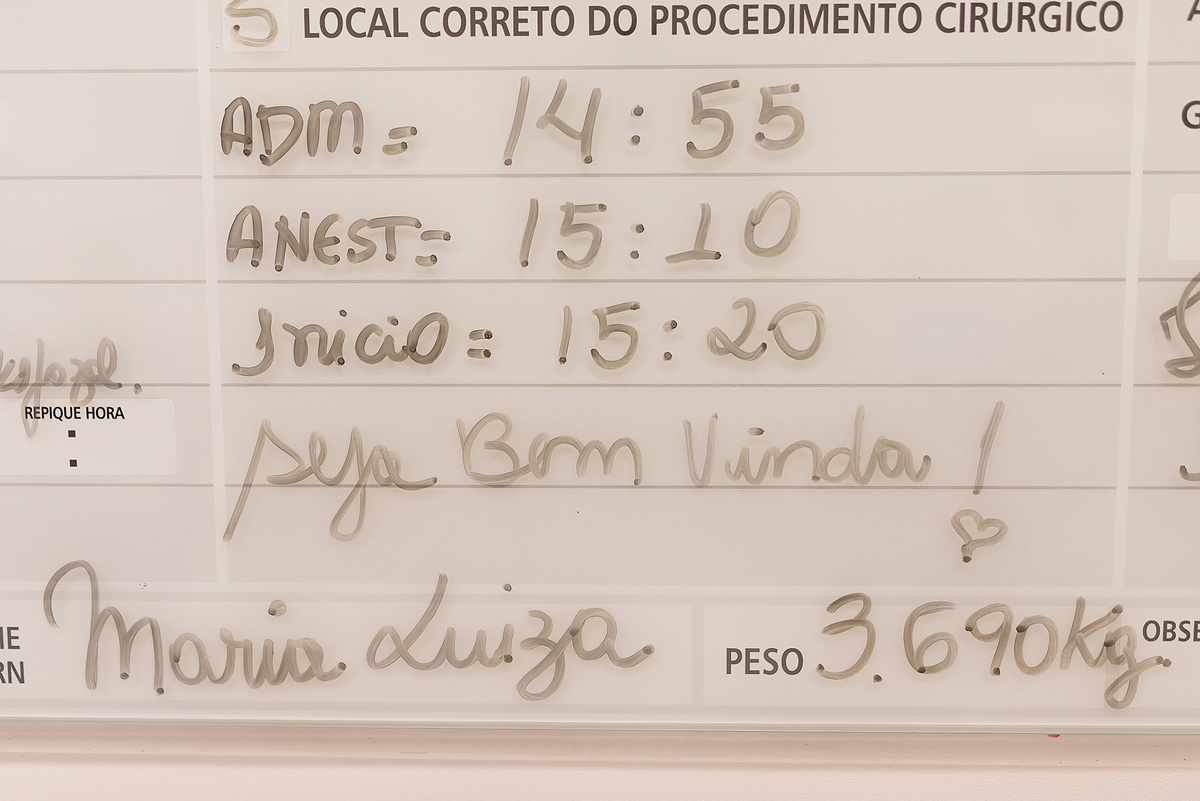 5 LOCAL CORRETO DO PROCEDIMENTO CIRURGICO
ADM = 14:55
ANEST= 15:10
Inicio = 15:20
REPIQUE HORA
:
Seja Bem Vinda!
Maria Luiza
RN
PESO 3.690Kg